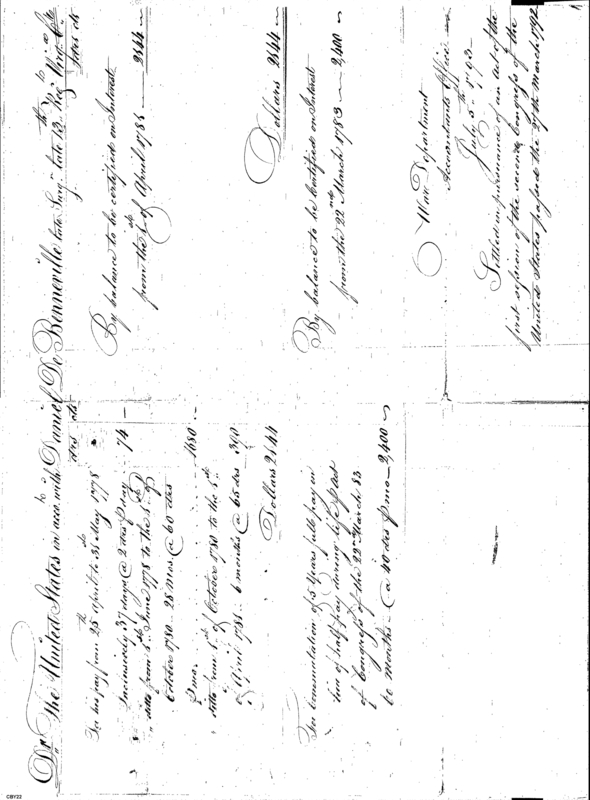 Dr The United States in acco. with Daniel De Benneville late Surgn late 13th Regt Virga
drs cts
For his pay from 25th april to 31st May 1778
Inclusively 37 days @ 2 drs P day 74 —
ditto from 1st June 1778 to the 1st of
October 1780 — 28 Mos. @ 60 drs
P mo. 1680 —
ditto from 1st of October 1780 to the 1st
of April 1781 — 6 months @ 65 drs 390
Dollars 2144
For Commutation of 5 Years full pay in
lieu of half pay during life P Act
of Congress of the 22nd March 83
60 months — @ 40 drs P mo — 2,400
drs cts
By balance to be certified on Interest
from the 1st of April 1781 — 2144 —
Dollars 2144 —
By balance to be Certified on Interest
from the 22nd March 1783 — 2,400
War Department
Accountants Office
July 5th 1793
Settled in pursuance of an act of the
first session of the second Congress of the
United States passed the 27th March 1792
CBY22